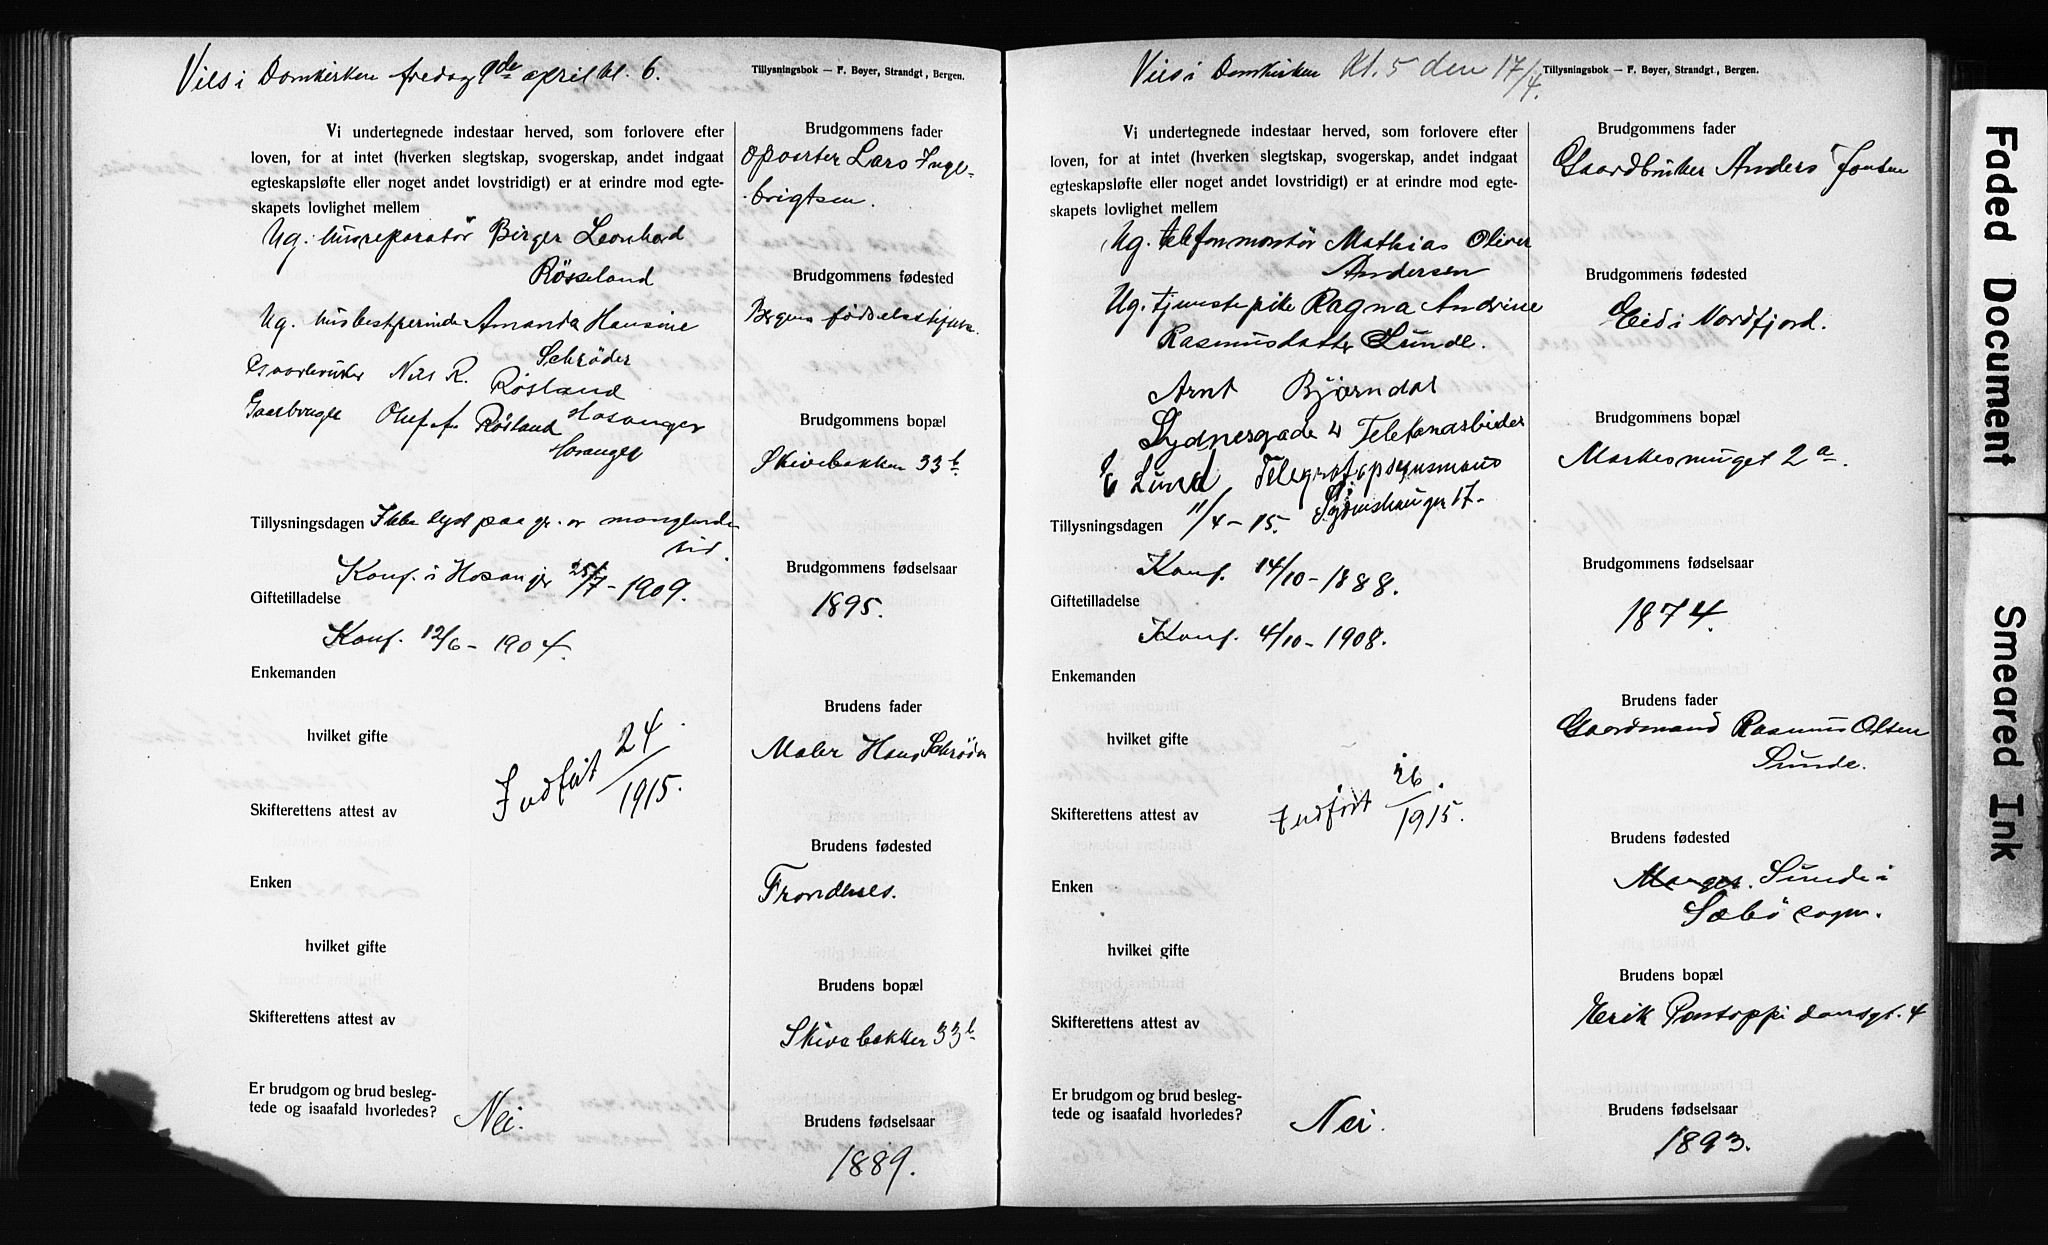 Vies i Domkirken fredag 9de april kl. 6.
Tillysningsbok — F. Bøyer, Strandgt., Bergen.
Vi undertegnede indestaar herved, som forlovere efter
loven, for at intet (hverken slegtskap, svogerskap, andet indgaat
egteskapsløfte eller noget andet lovstridigt) er at erindre mod egte-
skapets lovlighet mellem
Ug. Birger Leonhard
Røsseland
Ug. Amanda Hansine
Schrøder
Gaardbruker Nils R. Røsland
Hosanger
Røsland
Hosanger
Tillysningsdagen Ikke lyst paa gr. av manglende
tid.
Konf. i Hosanger 25/7 - 1909.
Giftetilladelse
Konf. 12/6 - 1904.
Enkemanden
hvilket gifte
Indført 24/1915.
Skifterettens attest av
Enken
hvilket gifte
Skifterettens attest av
Er brudgom og brud besleg-
tede og isaafald hvorledes?
Nei.
Brudgommens fader
Lars Inge-
brigtsen.
Brudgommens fødested
Bergens fødselsstift.
Brudgommens bopæl
Skivebakken 33b
Brudgommens fødselsaar
1895.
Brudens fader
Maler Hans Schrøder
Brudens fødested
Trondenes.
Brudens bopæl
Skivebakken 33b
Brudens fødselsaar
1889.
Vies i Domkirken Kl. 5 den 17/4.
Tillysningsbok — F. Bøyer, Strandgt., Bergen.
Vi undertegnede indestaar herved, som forlovere efter
loven, for at intet (hverken slegtskap, svogerskap, andet indgaat
egteskapsløfte eller noget andet lovstridigt) er at erindre mod egte-
skapets lovlighet mellem
Ug. telefonmontør Mathias Oliver
Andersen
Ug. tjenestepike Ragna Andrine
Rasmusdatter Sunde.
Arnt Bjørndal
Sydnesgade 4 Telefonarbeider
Lund
17.
Tillysningsdagen 11/4 - 15.
Konf. 14/10 - 1888.
Giftetilladelse
Konf. 4/10 - 1908.
Enkemanden
hvilket gifte
Indført 26/1915.
Skifterettens attest av
Enken
hvilket gifte
Skifterettens attest av
Er brudgom og brud besleg-
tede og isaafald hvorledes?
Nei.
Brudgommens fader
Gaardbruker Anders
Brudgommens fødested
Eid i Nordfjord.
Brudgommens bopæl
Markesmuget 2a.
Brudgommens fødselsaar
1874.
Brudens fader
Gaardmand Rasmus Olsen
Sunde.
Brudens fødested
Sunde i
Sæbø sogn.
Brudens bopæl
Erik Pontoppidansgt. 4
Brudens fødselsaar
1893.
Faded Document
Smeared Ink